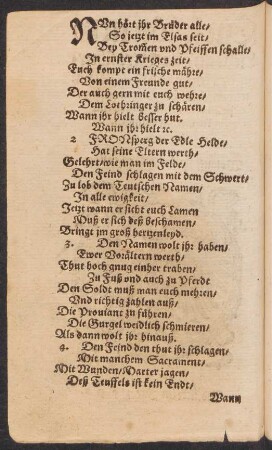 NUn hört jhr Brüder alle/
So jetzt im Elsas seit/
Bey Trommen vnd Pfeiffen schalle/
In ernster Krieges zeit/
Euch kompt ein frische mähre/
Von einem Freunde gut/
Der auch gern mit euch wehre/
Dem Lothringer zu schären/
Wann jhr hielt besser hut.
Wann jhr hielt ꝛc.
2 FRONsperg der Edle Helde/
Hat seine Eltern werth/
Gelehrt/ wie man im Felde/
Den Feind schlagen mit dem Schwert/
Zu lob dem Teutschen Namen/
In alle ewigkeit/
Jetzt wann er sicht euch Lamen
Muß er sich deß beschamen/
Bringt jm groß hertzenleyd.
3. Den Namen wolt jhr haben/
Ewer Vorältern werth/
Thut hoch gnug einher traben/
Zu Fuß vnd auch zu Pferdt
Den Soldt muß man euch mehren/
Vnd richtig zahlen auß/
Die Prouiant zu führen/
Die Gurgel weidlich schmieren/
Als dann wolt jhr hinauß.
4. Den Feind den thut jhr schlagen/
Mit manchem Sacrament/
Mit Wunden/ Marter jagen/
Deß Teuffels ist kein Endt/
Wann